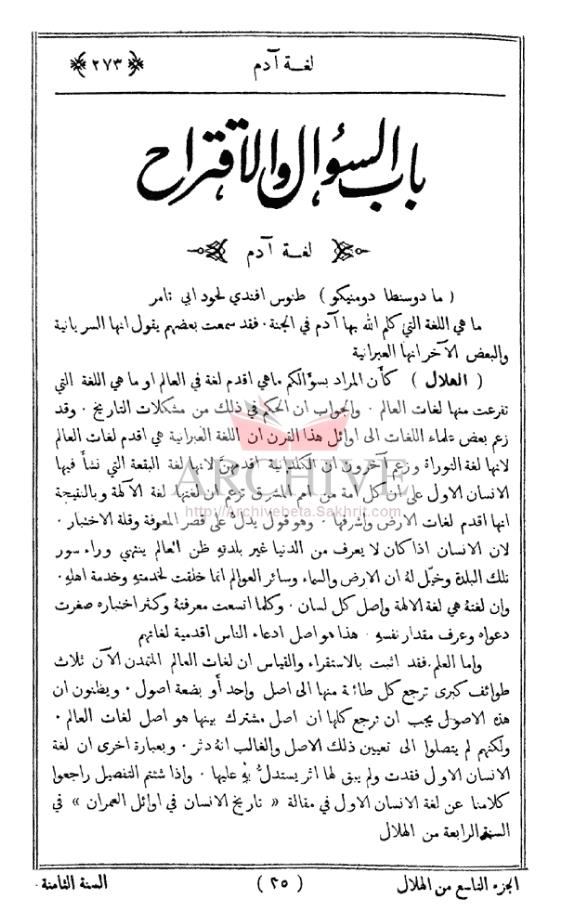 لغة آدم ﴿ ٢٧٣ ﴾
باب السؤال والاقتراح
لغة آدم
( ما دوسنطا دومنيكو ) طنوس افندي لحود ابي تامر
ما هي اللغة التي كلم الله بها آدم في الجنة . فقد سمعت بعضهم يقول انها السريانية
والبعض الآخر انها العبرانية
( الهلال ) كأن المراد بسؤالكم ماهي اقدم لغة في العالم او ما هي اللغة التي
تفرعت منها لغات العالم . والجواب ان الحكم في ذلك من مشكلات التاريخ . وقد
زعم بعض علماء اللغات الى اوائل هذا القرن ان اللغة العبرانية هي اقدم لغات العالم
لانها لغة التوراة وزعم آخرون ان الكلدانية اقدمهنَّ لانها لغة البقعة التي نشأ فيها
الانسان الاول على ان كل امة من امم المشرق تزعم ان لغتها لغة الآلهة وبالنتيجة
انها اقدم لغات الارض واشرفها . وهو قول يدلُّ على قصر المعرفة وقلة الاختبار .
لان الانسان اذا كان لا يعرف من الدنيا غير بلدته ظن العالم ينتهي وراء سور
تلك البلدة وخيّل لهُ ان الارض والسماء وسائر العوالم انما خلقت لخدمته وخدمة اهلهِ .
وان لغتهُ هي لغة الالهة واصل كل لسان . وكلما اتسعت معرفتهُ وكثر اختباره صغرت
دعواه وعرف مقدار نفسهِ . هذا هو اصل ادعاء الناس اقدمية لغاتهم
واما العلم . فقد اثبت بالاستقراء والقياس ان لغات العالم المتمدن الآن ثلاث
طوائف كبرى ترجع كل طائفة منها الى اصل واحد أو بضعة اصول . ويظنون ان
هذه الاصول يجب ان ترجع كلها ان اصل مشترك بينها هو اصل لغات العالم .
ولكنهم لم يتصلوا الى تعيين ذلك الاصل والغالب انهُ دثر . وبعبارة اخرى ان لغة
الانسان الاول فقدت ولم يبق لها اثر يستدلُّ بهِ عليها . واذا شئتم التفصيل راجعوا
كلامنا عن لغة الانسان الاول في مقالة « تاريخ الانسان في اوائل العمران » في
السنة الرابعة من الهلال
الجزء التاسع من الهلال ( ٣٥ ) السنة الثامنة
ARCHIVE
http://Archivebeta.Sakhrit.com